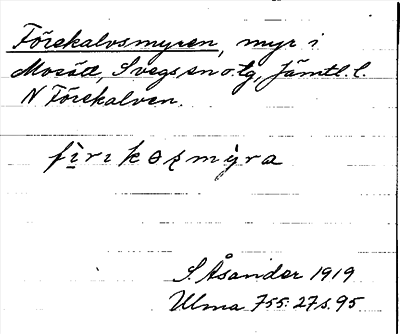 Förekalvsmyren, myr i
Mosätt, Svegs sn o. tg, Jämtl. l.
N Förekalven.
S. Åsander 1919
Ulma 755:27 s. 95